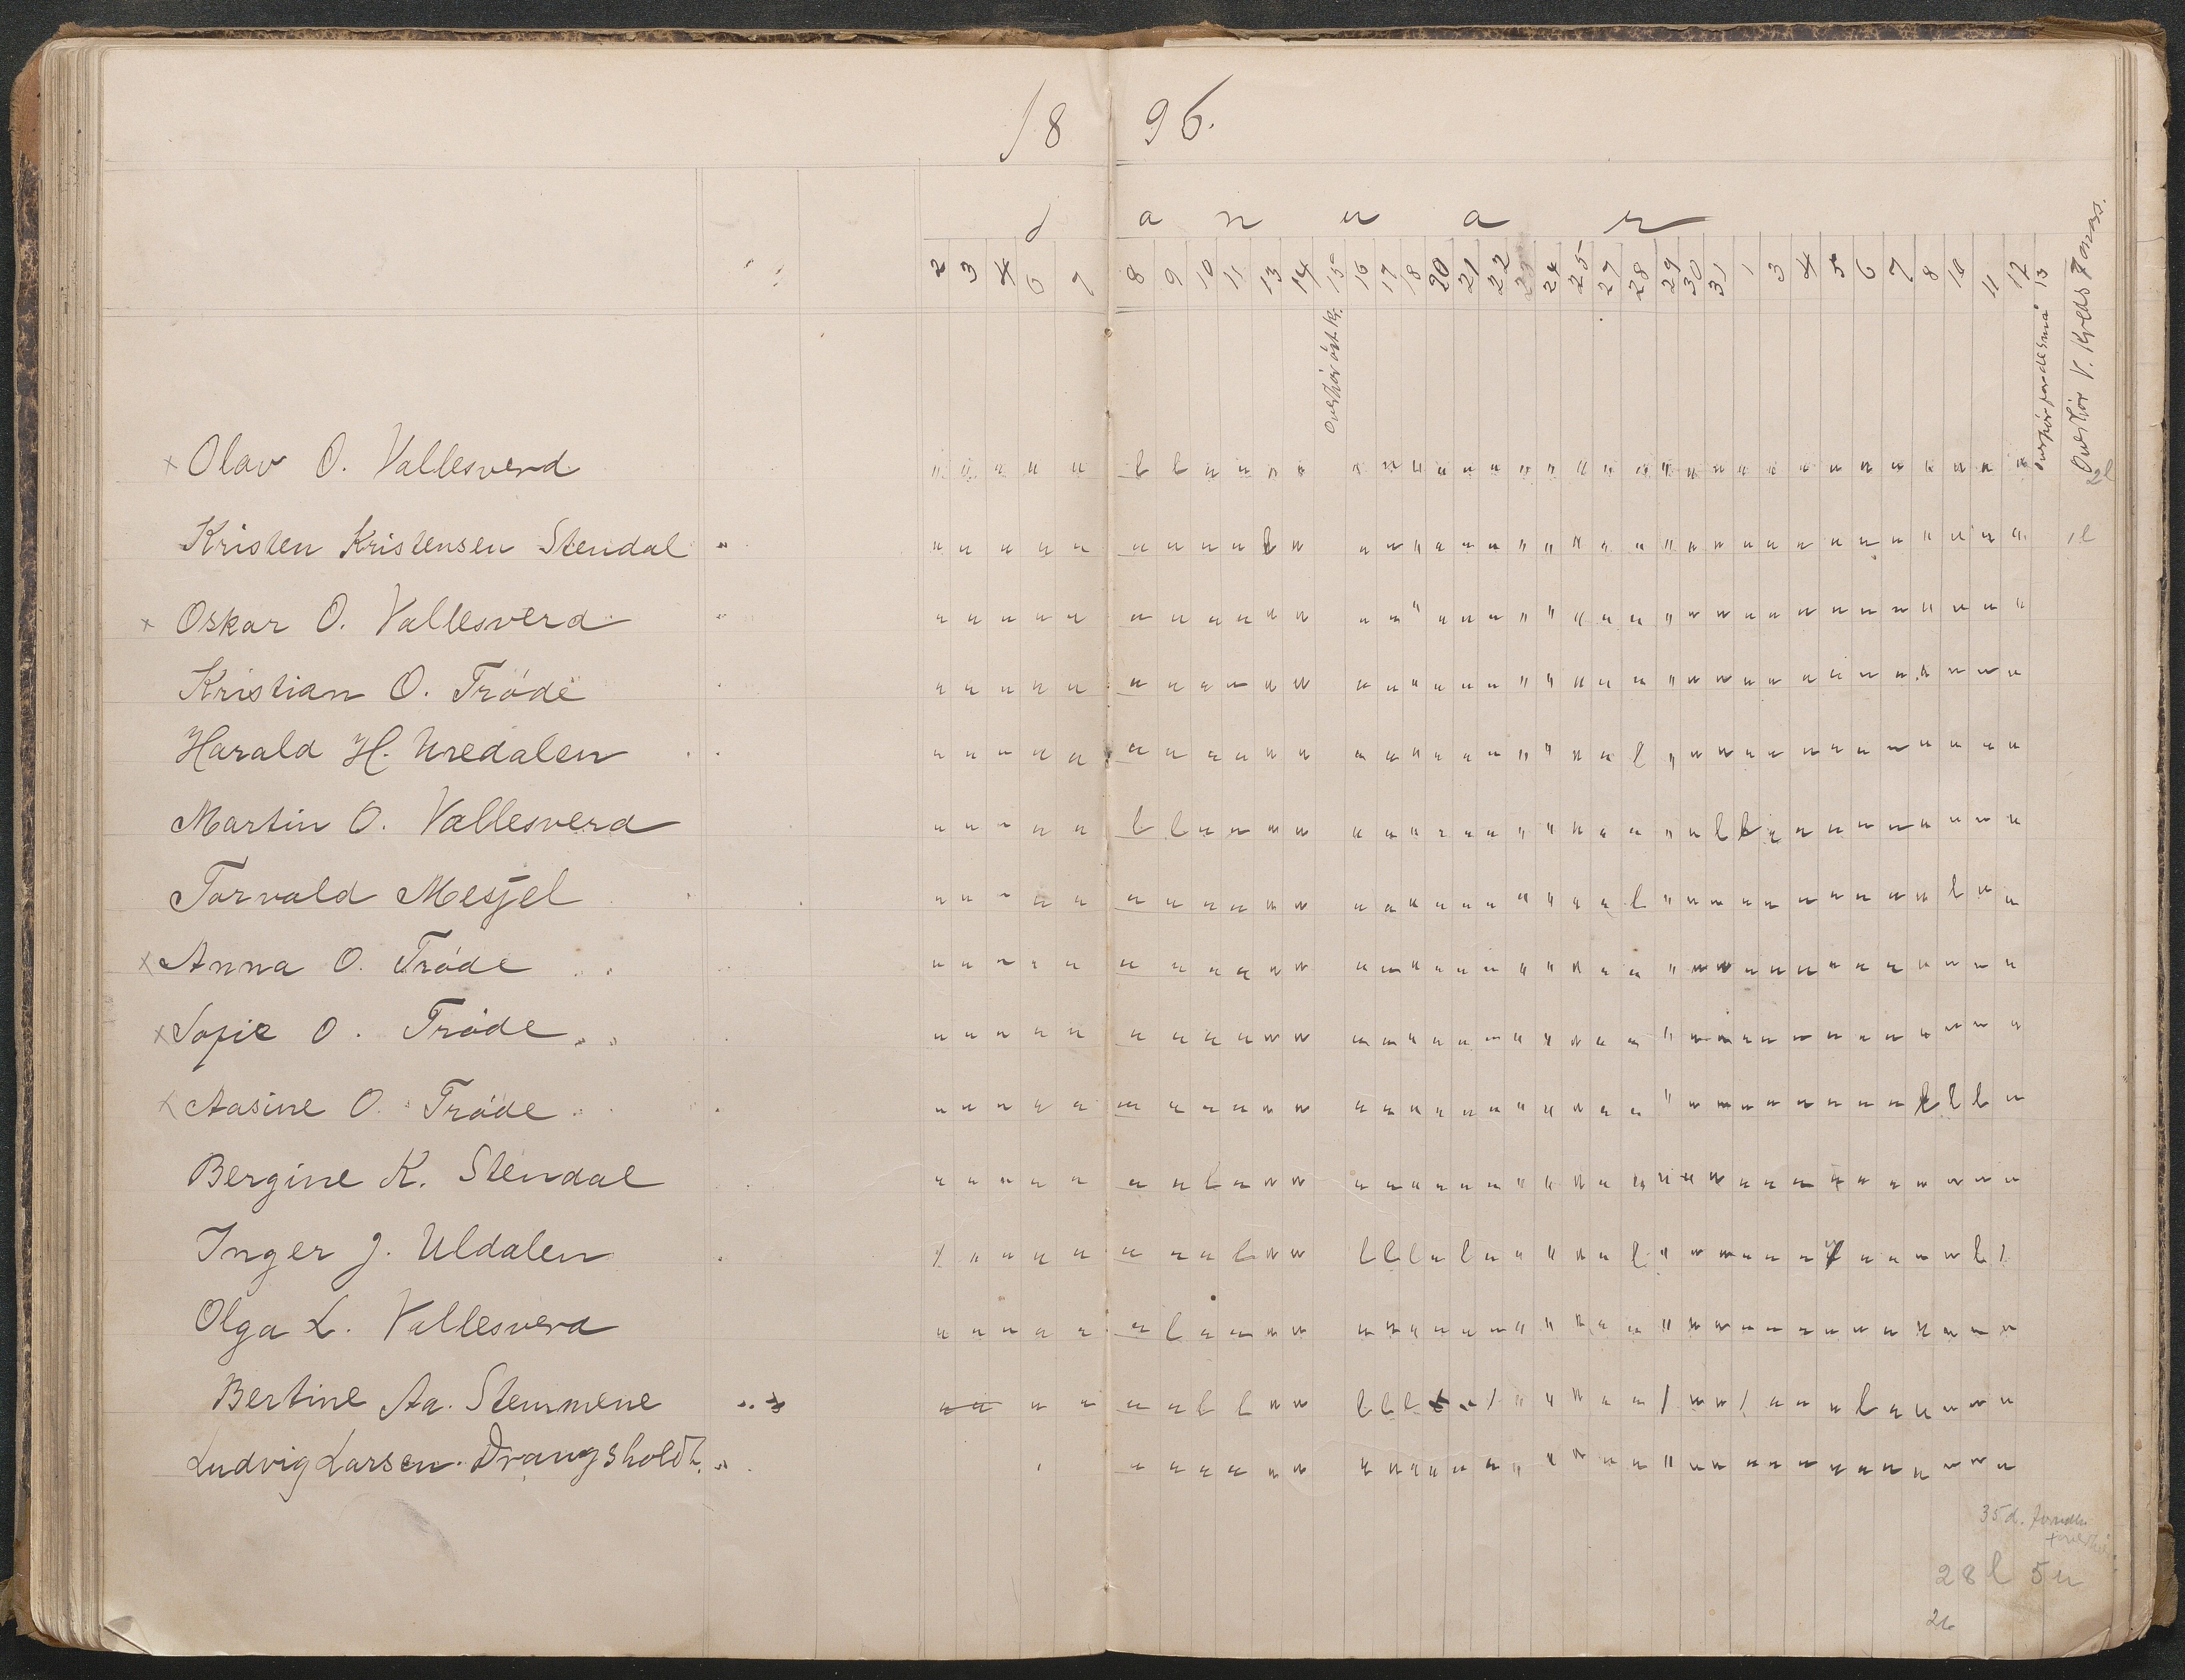 18 96.
Januar
2 3 4 6 7 8 9 10 11 13 14 15 16 17 18 20 21 22 23 24 25 27 28 29 30 31 1 3 4 5 6 7 8 10 11 12 13
Overhør øst. kr.
Overhør V. Kreds
× Olav O. Vallesverd " " " " " l l " " " " " " " " " " " " " " " " " " " " " " " " " " " " 2l
Kristen Kristensen Stendal " " " " " " " " " l " " " " " " " " " " " " " " " " " " " " " " " " " 1l
× Oskar O. Vallesverd " " " " " " " " " " " " " " " " " " " " " " " " " " " " " " " " " " "
Kristian O. Trøde " " " " " " " " " " " " " " " " " " " " " " " " " " " " " " " " " " "
Harald H. Uredalen " " " " " " " " " " " " " " " " " " " " " " l " " " " " " " " " " " "
Martin O. Vallesverd " " " " " l l " " " " " " " " " " " " " " " " " l l " " " " " " " " "
Torvald Mesjel " " " " " " " " " " " " " " " " " " " " " " l " " " " " " " " " l " "
× Anna O. Trøde " " " " " " " " " " " " " " " " " " " " " " " " " " " " " " " " " " "
× Sofie O. Trøde " " " " " " " " " " " " " " " " " " " " " " " " " " " " " " " " " " "
× Aasine O. Trøde " " " " " " " " " " " " " " " " " " " " " " " " " " " " " " " l l l "
Bergine K. Stendal " " " " " " " l " " " " " " " " " " " " " " " " " " " " " " " " " " "
Inger J. Uldalen / " " " " " " " l " " l l l " l " " " " " " l " " " " " " " " " " l /
Olga L. Vallesverd " " " " " " l " " " " " " " " " " " " " " " " " " " " " " " " " " " "
Bertine Aa. Stemmene " " " " " " l l " " l l l " / " " " " " / " " / " " " l " " " " "
Ludvig Larsen Drangsholdt " " " " " " " " " " " " " " " " " " " " " " " " " " " " " "
35 d.
28 l 5 u